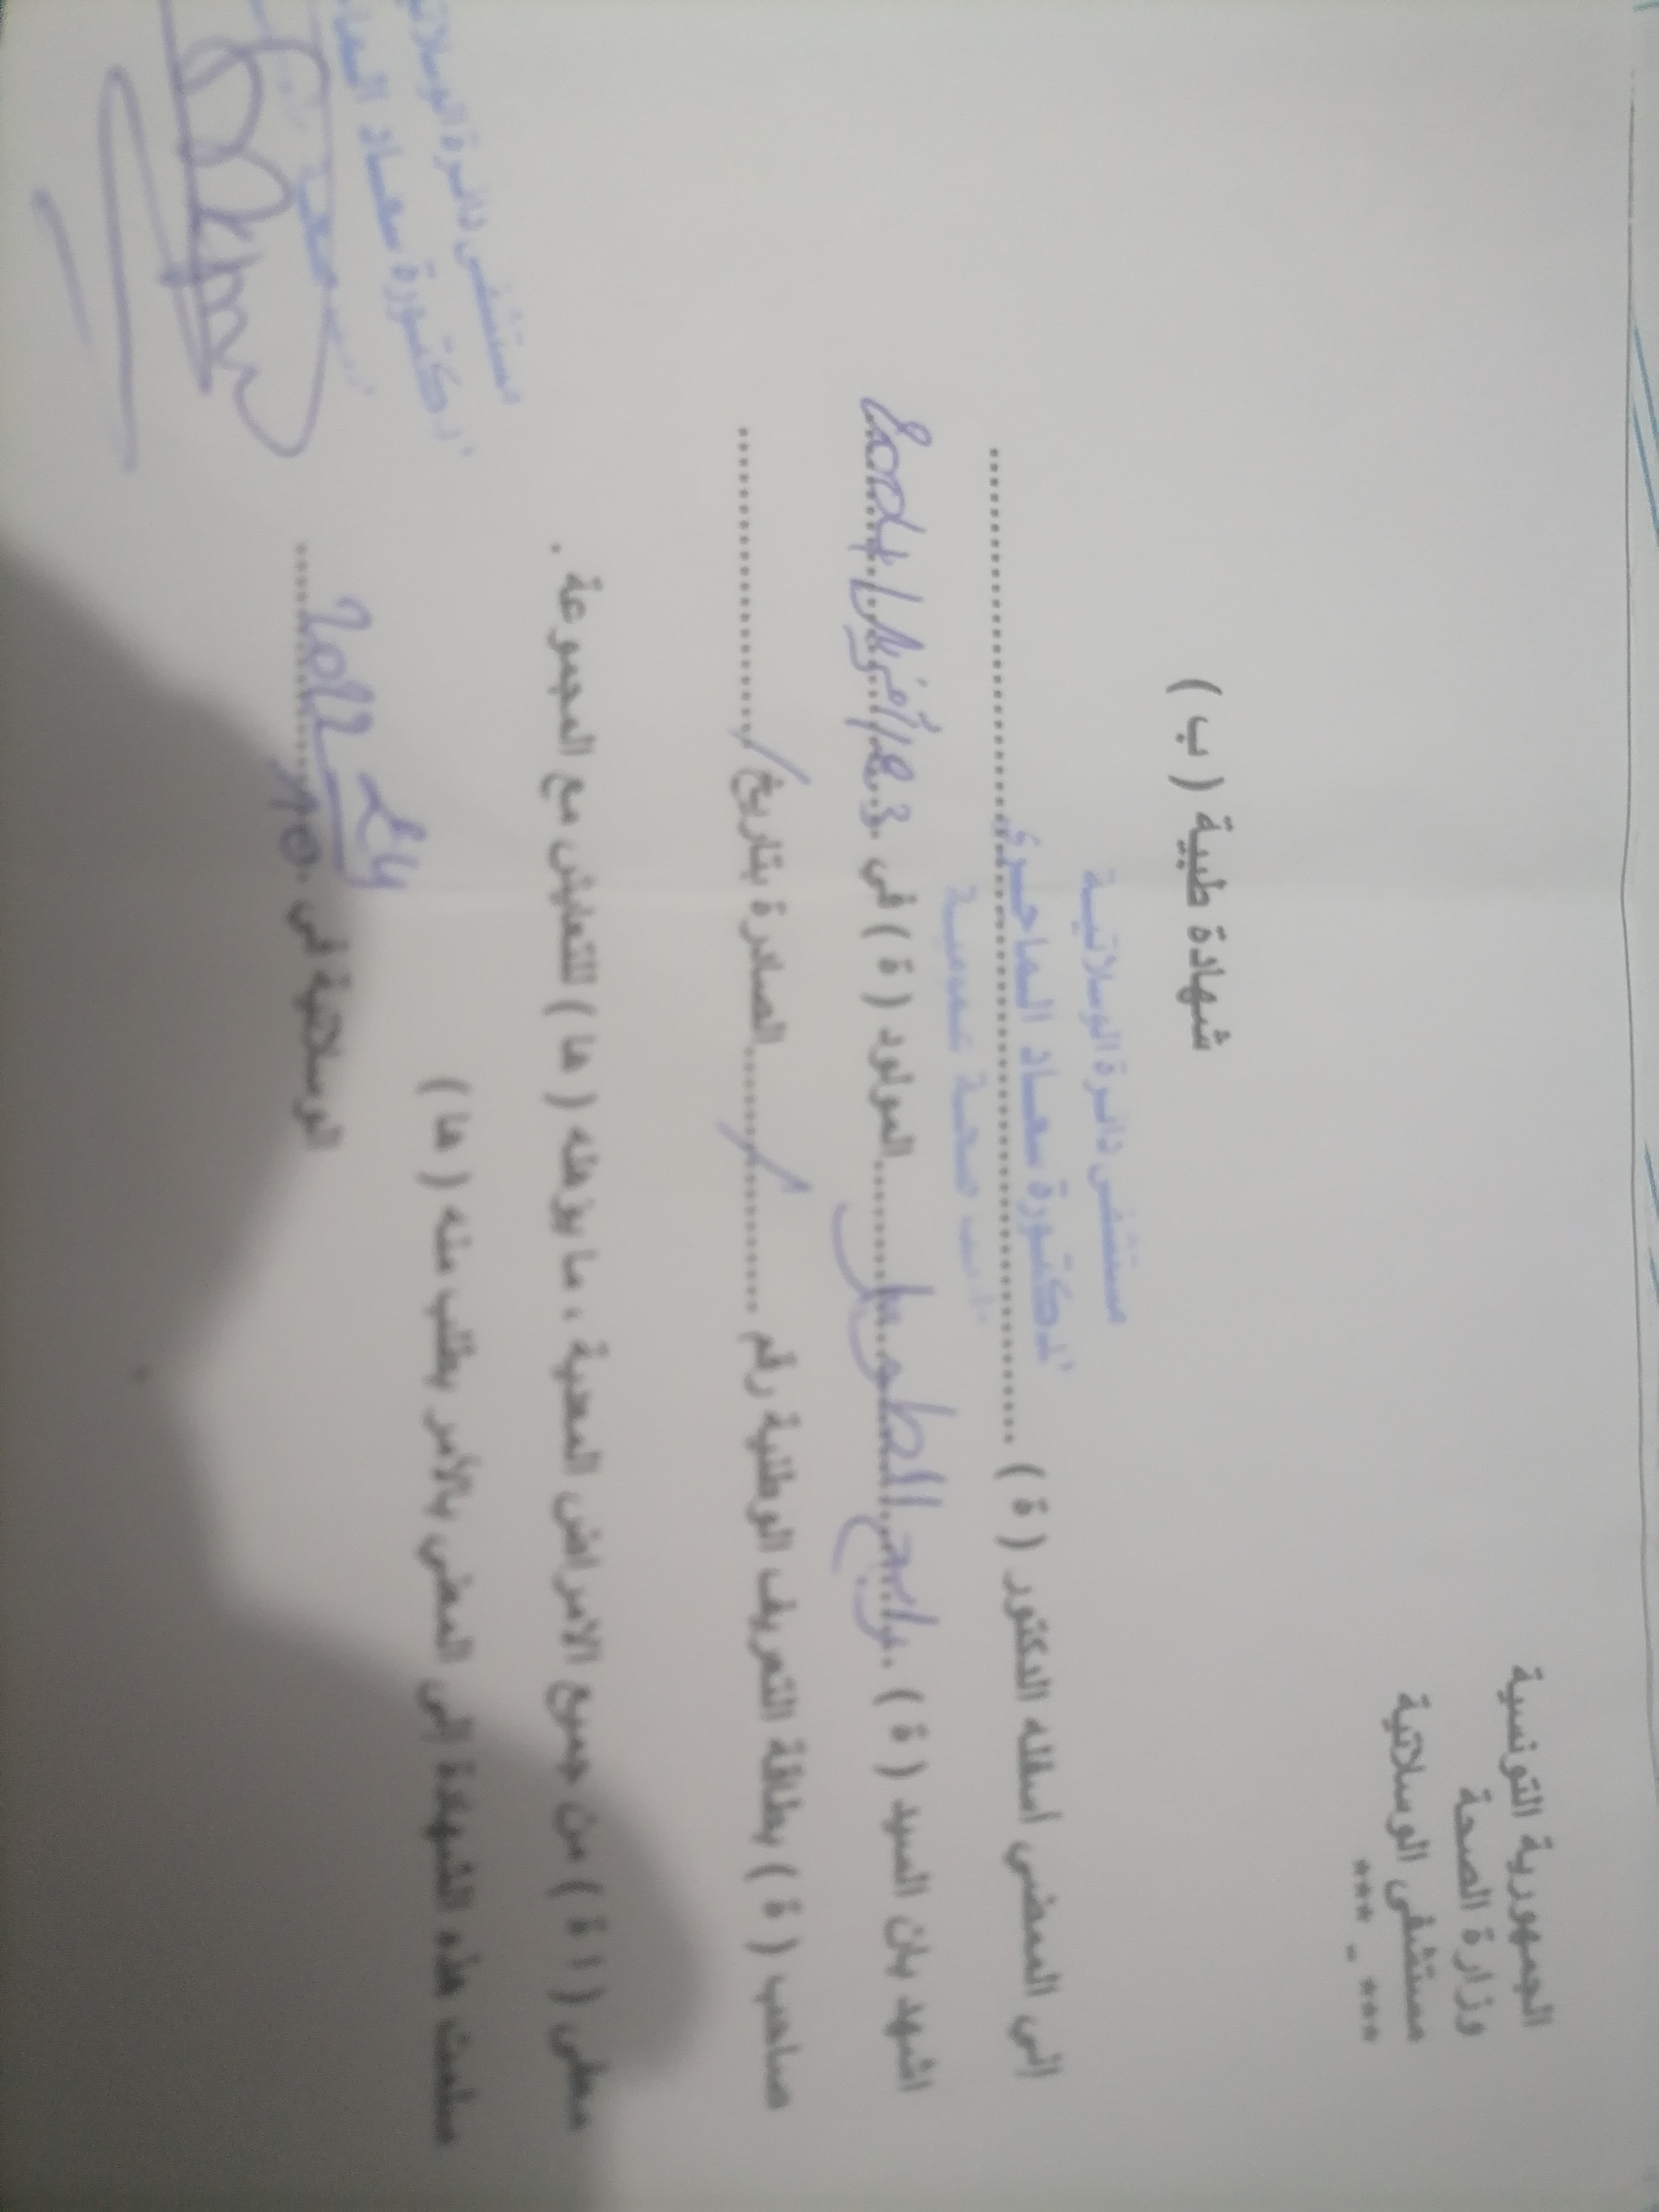 الجمهورية التونسية
وزارة الصحة
مستشفى الوسلاتية
*** - ***
شهادة طبية ( ب )
مستشفى دائرة الوسلاتية
الدكتورة سعاد الماجري
صحة عمومية
إني الممضي أسفله الدكتور ( ة ) ........................................
اشهد بان السيد ( ة ) رابح الطويل المولود ( ة ) في
صاحب ( ة ) بطاقة التعريف الوطنية رقم ........../.......... الصادرة بتاريخ /....................
معفى ( ا ة ) من جميع الامراض المعدية ، ما يؤهله ( ها ) للتعايش مع المجموعة .
سلمت هذه الشهادة إلى المعني بالأمر بطلب منه ( ها )
الوسلاتية في
مستشفى دائرة
الدكتورة سعاد